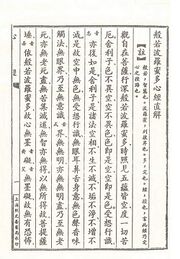 般若波羅蜜多心經直解
【註】
觀自在菩薩行深般若波羅蜜多時照見五蘊皆空度一切苦
厄舍利子色不異空空不異色色即是空空即是色受想行識
亦復如是舍利子是諸法空相不生不滅不垢不淨不增不
減是故空中無色無受想行識無眼耳鼻舌身意無色聲香味
觸法無眼界乃至無意識界無無明亦無無明盡乃至無老
死亦無老死盡無苦集滅道無智亦無得以無所得故菩提薩
埵依般若波羅蜜多故心無罣礙無罣礙故無有恐怖